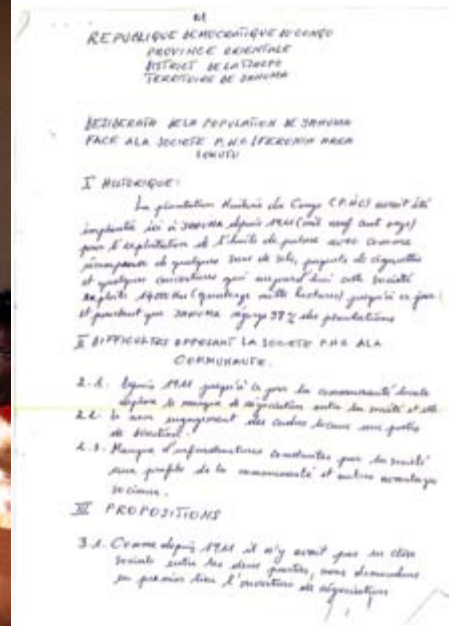 REPUBLIQUE DEMOCRATIQUE DU CONGO
PROVINCE ORIENTALE
DISTRICT DE LA TSHOPO
TERRITOIRE DE YAHUMA
DESIDERATA DE LA POPULATION DE YAHUMA
FACE A LA SOCIETE P.H.C / FERONIA AREA
LOKUTU
I HISTORIQUE:
La plantation Huilerie du Congo (P.H.C) avait été
implantée ici à YAHUMA depuis 1911 (mil neuf cent onze)
pour l'exploitation de l'huile de palme avec comme
récompense de quelques sacs de sels, paquets de cigarettes
et quelques couvertures qui aujourd'hui cette société
exploite 14000 Ha (quatorze mille hectares) jusqu'à ce jour
et pourtant que YAHUMA regorge 38% des plantations
II DIFFICULTES OPPOSANT LA SOCIETE P.H.C A LA
COMMUNAUTE.
2.1. Depuis 1911 jusqu'à ce jour la communauté locale
déplore le manque de négociation entre la société et elle
2.2. Le non engagement des cadres locaux aux postes
de direction.
2.3. Manque d'infrastructures construites par la société
aux profits de la communauté et autres avantages
sociaux.
III PROPOSITIONS
3.1. Comme depuis 1911 il n'y avait pas
sociale entre les deux parties, nous demandons
en premier lieu l'ouverture de négociation